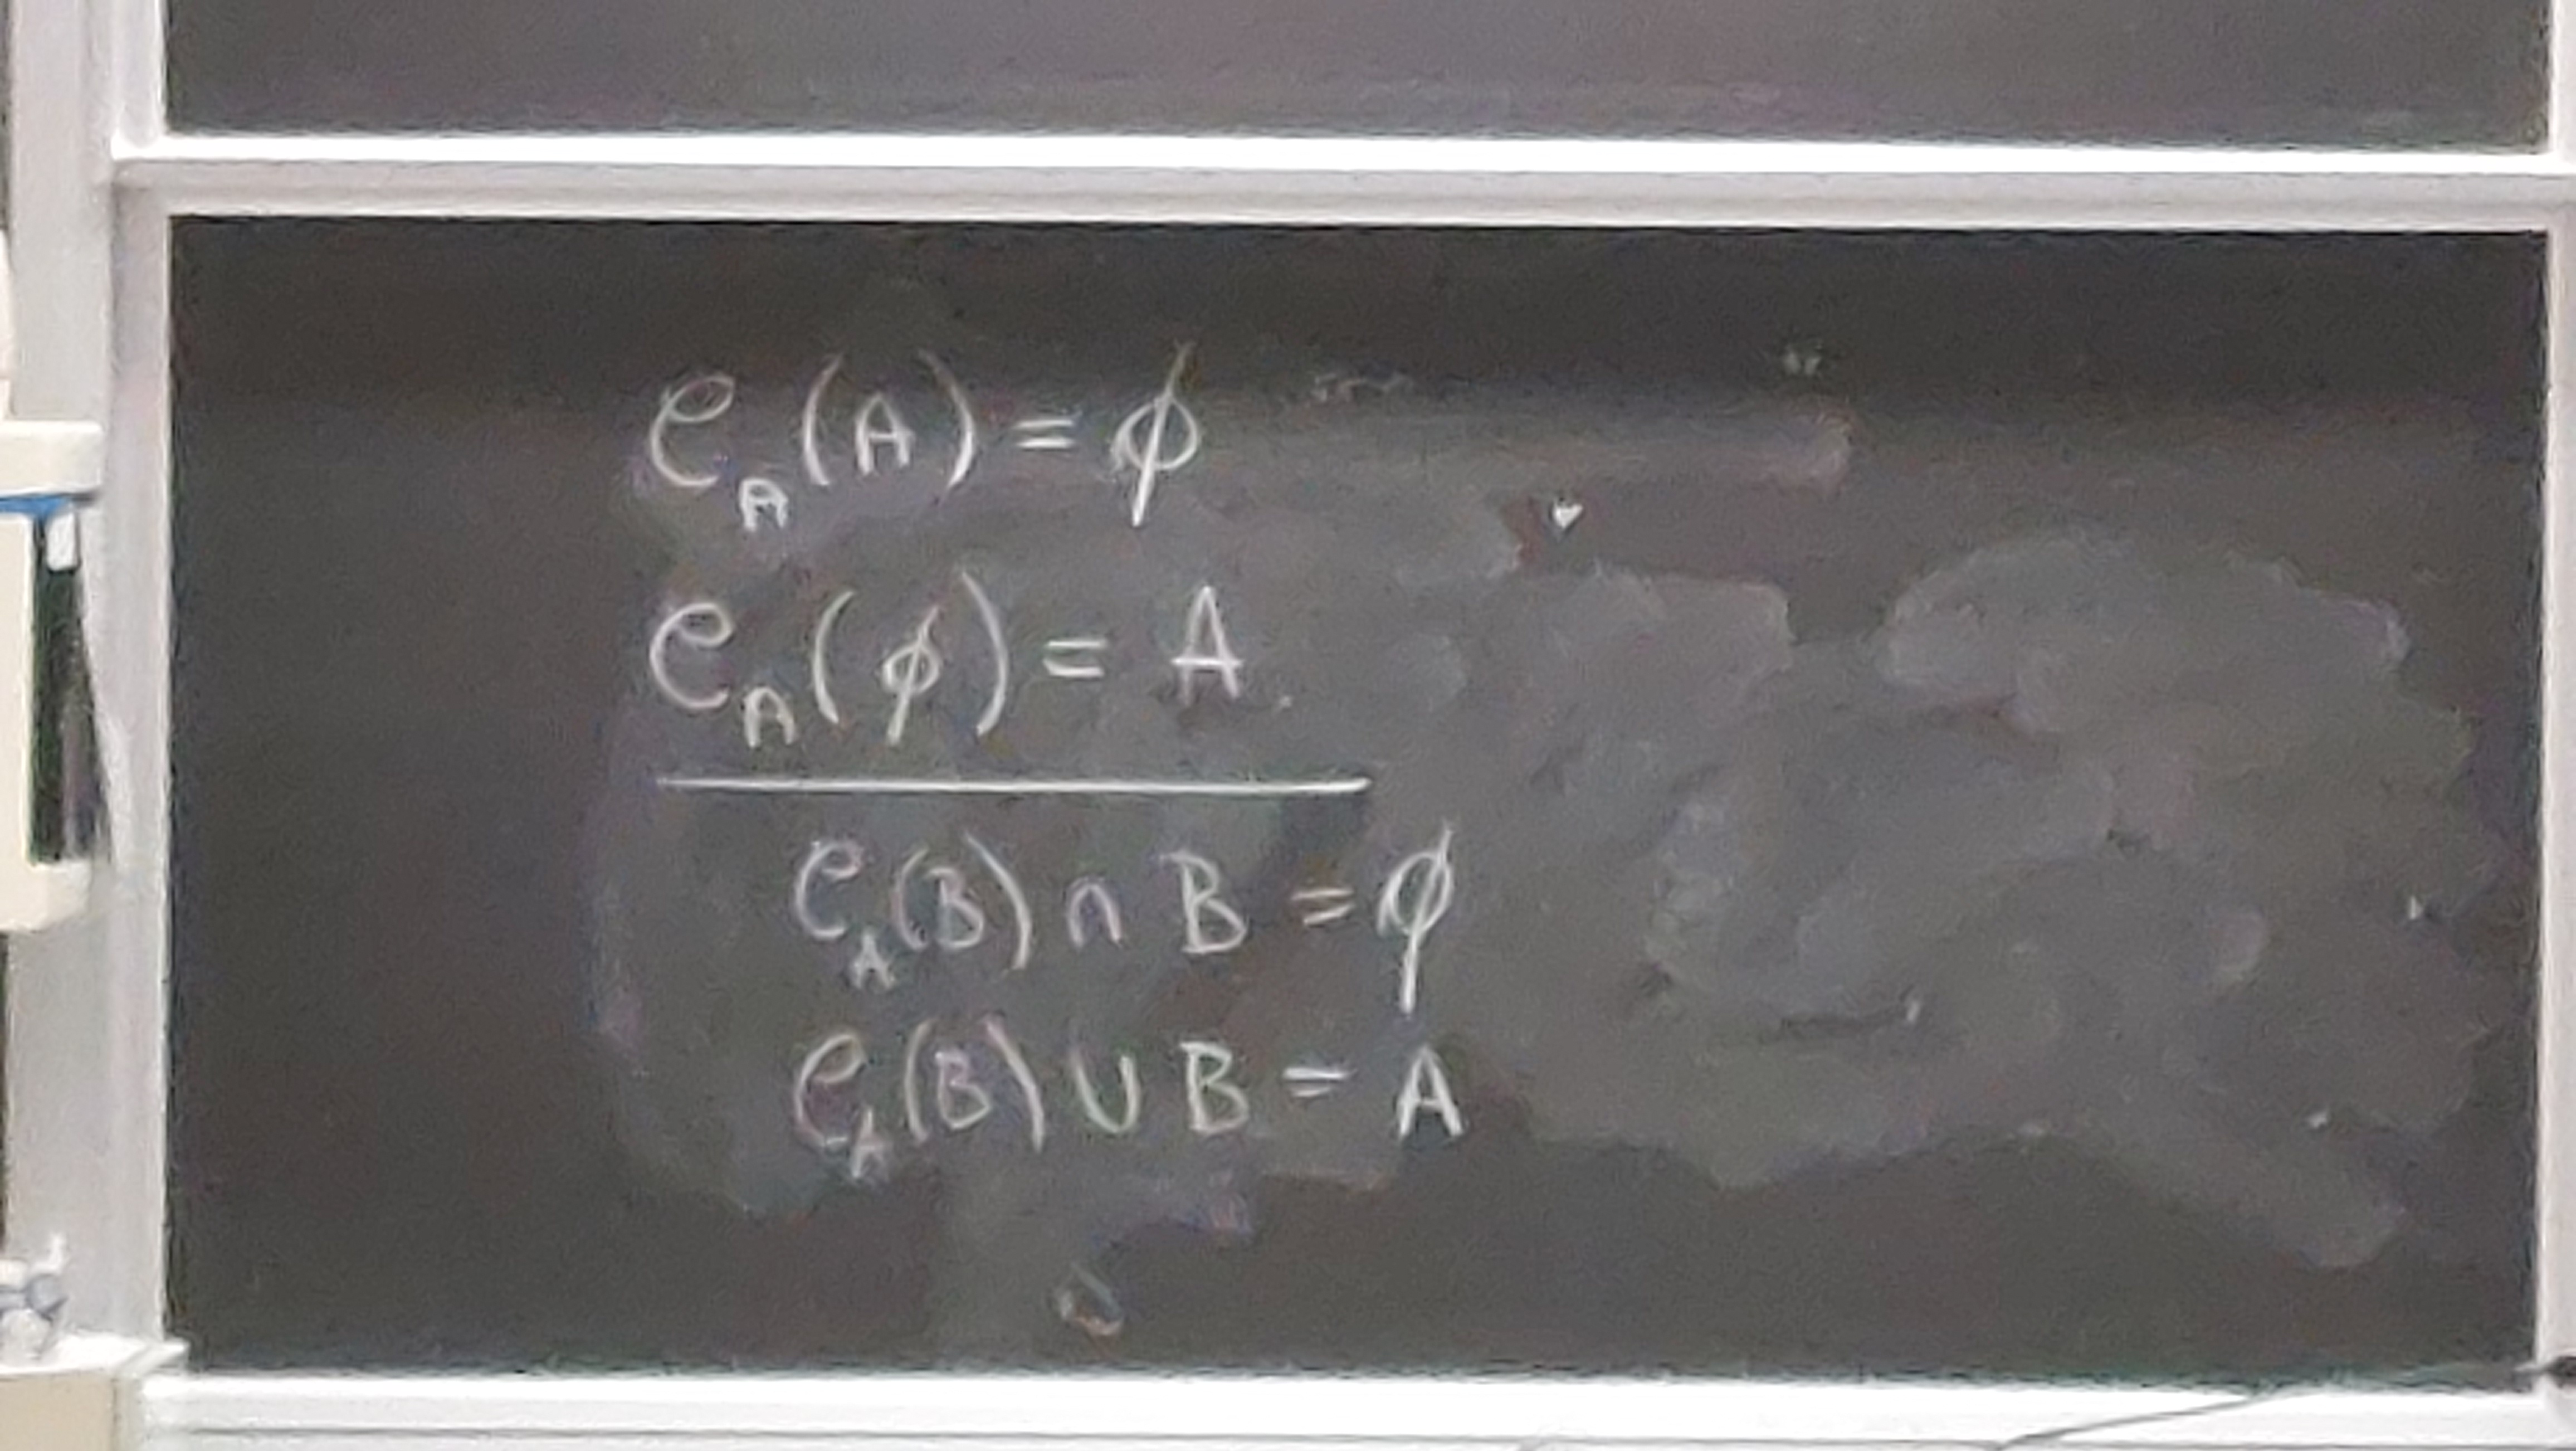 C_A(A) = ϕ
C_A(ϕ) = A.
C_A(B) ∩ B = ϕ
C_A(B) ∪ B = A